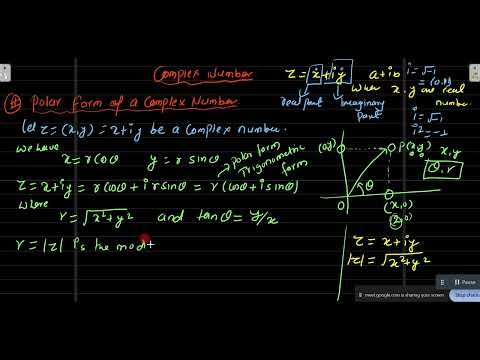 Complex Number
z = x + iy
a+ib
i=√-1
= (0,1)
real part
Imaginary part
where x, y are real number
i = √-1
i² = -1
# Polar form of a Complex Number
Let z = (x,y) = x+iy be a complex number.
we have
x = r cosθ y = r sinθ
Polar form
Trigonometric form
z = x+iy = r cosθ + i r sinθ = r (cosθ + i sinθ)
where
r = √x²+y² and tanθ = y/x
r = |z| is the mod
(0,y)
P(x,y)
x, y
θ, r
θ
O
(x,0)
z = x + iy
|z| = √x²+y²
Pause
meet.google.com is sharing your screen.
Stop share